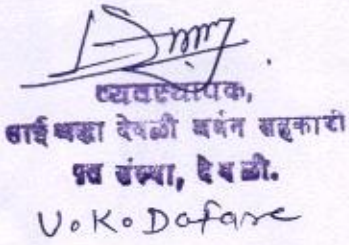 व्यवस्थापक,
साई श्रद्धा देवळी अर्बन सहकारी
पत संस्था, देवळी.
V.K.Dafare